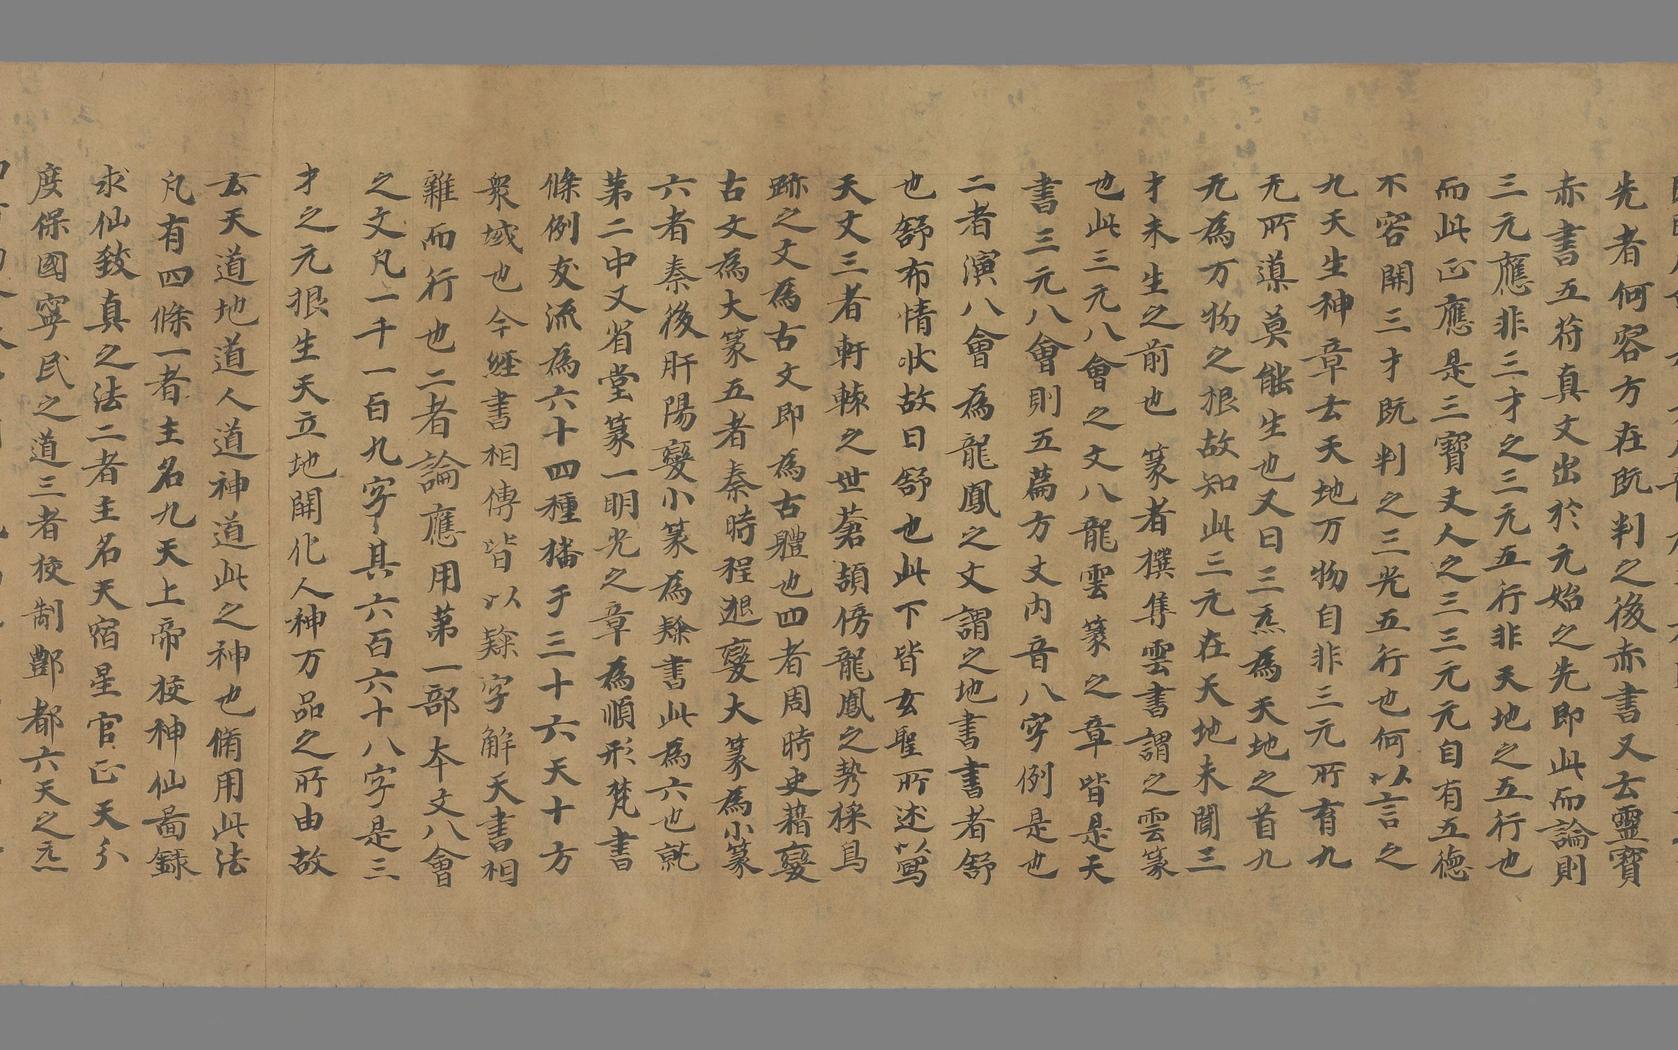 先者何容方在既判之後赤書又云靈寶
赤書五符真文出於元始之先即此而論則
三元應非三才之三元五行非天地之五行也
而此正應是三寶丈人之三三元元自有五德
不容開三才既判之三光五行也何以言之
九天生神章去天天地万物自非三元所有九
无所導莫能生也又曰三炁為天地之首九
无為万物之根故知此三元在天地未開三
才未生之前也 篆者撰集雲書謂之雲篆
也此三元八會之文八龍雲篆之章皆是天
書三元八會則五篇方丈内音八字例是也
二者演八會為龍鳳之文謂之地書書者舒
也舒布情狀故曰舒也此下皆玄聖所述以寫
天文三者軒轅之世蒼頡傍龍鳳之勢採鳥
跡之文為古文即為古體也四者周時史籀變
古文為大篆五者秦時程邈變大篆為小篆
六者秦後肝陽變小篆為隸書此為六也就
第二中又省堂篆一明光之章為順形梵書
條例支流為六十四種播于三十六天十方
衆域也今經書相傳皆以隸字解天書相
雜而行也二者論應用第一部本文八會
之文凡一千一百九字其六百六十八字是三
才之元根生天立地開化人神万品之所由故
云天道地道人道神道此之神也脩用此法
凡有四條一者主名九天上帝校神仙啚錄
求仙致真之法二者主名天宿星官正天分
度保國寧民之道三者校制酆都六天之炁